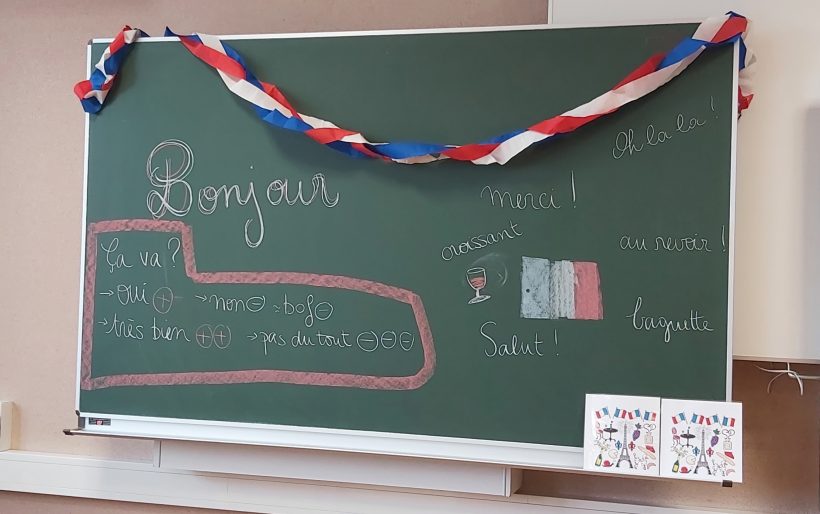 Bonjour
Ça va ?
→ oui + → non - ≈ bof -
→ très bien ++ → pas du tout ---
Oh la la !
merci !
croissant
au revoir !
baguette
Salut !